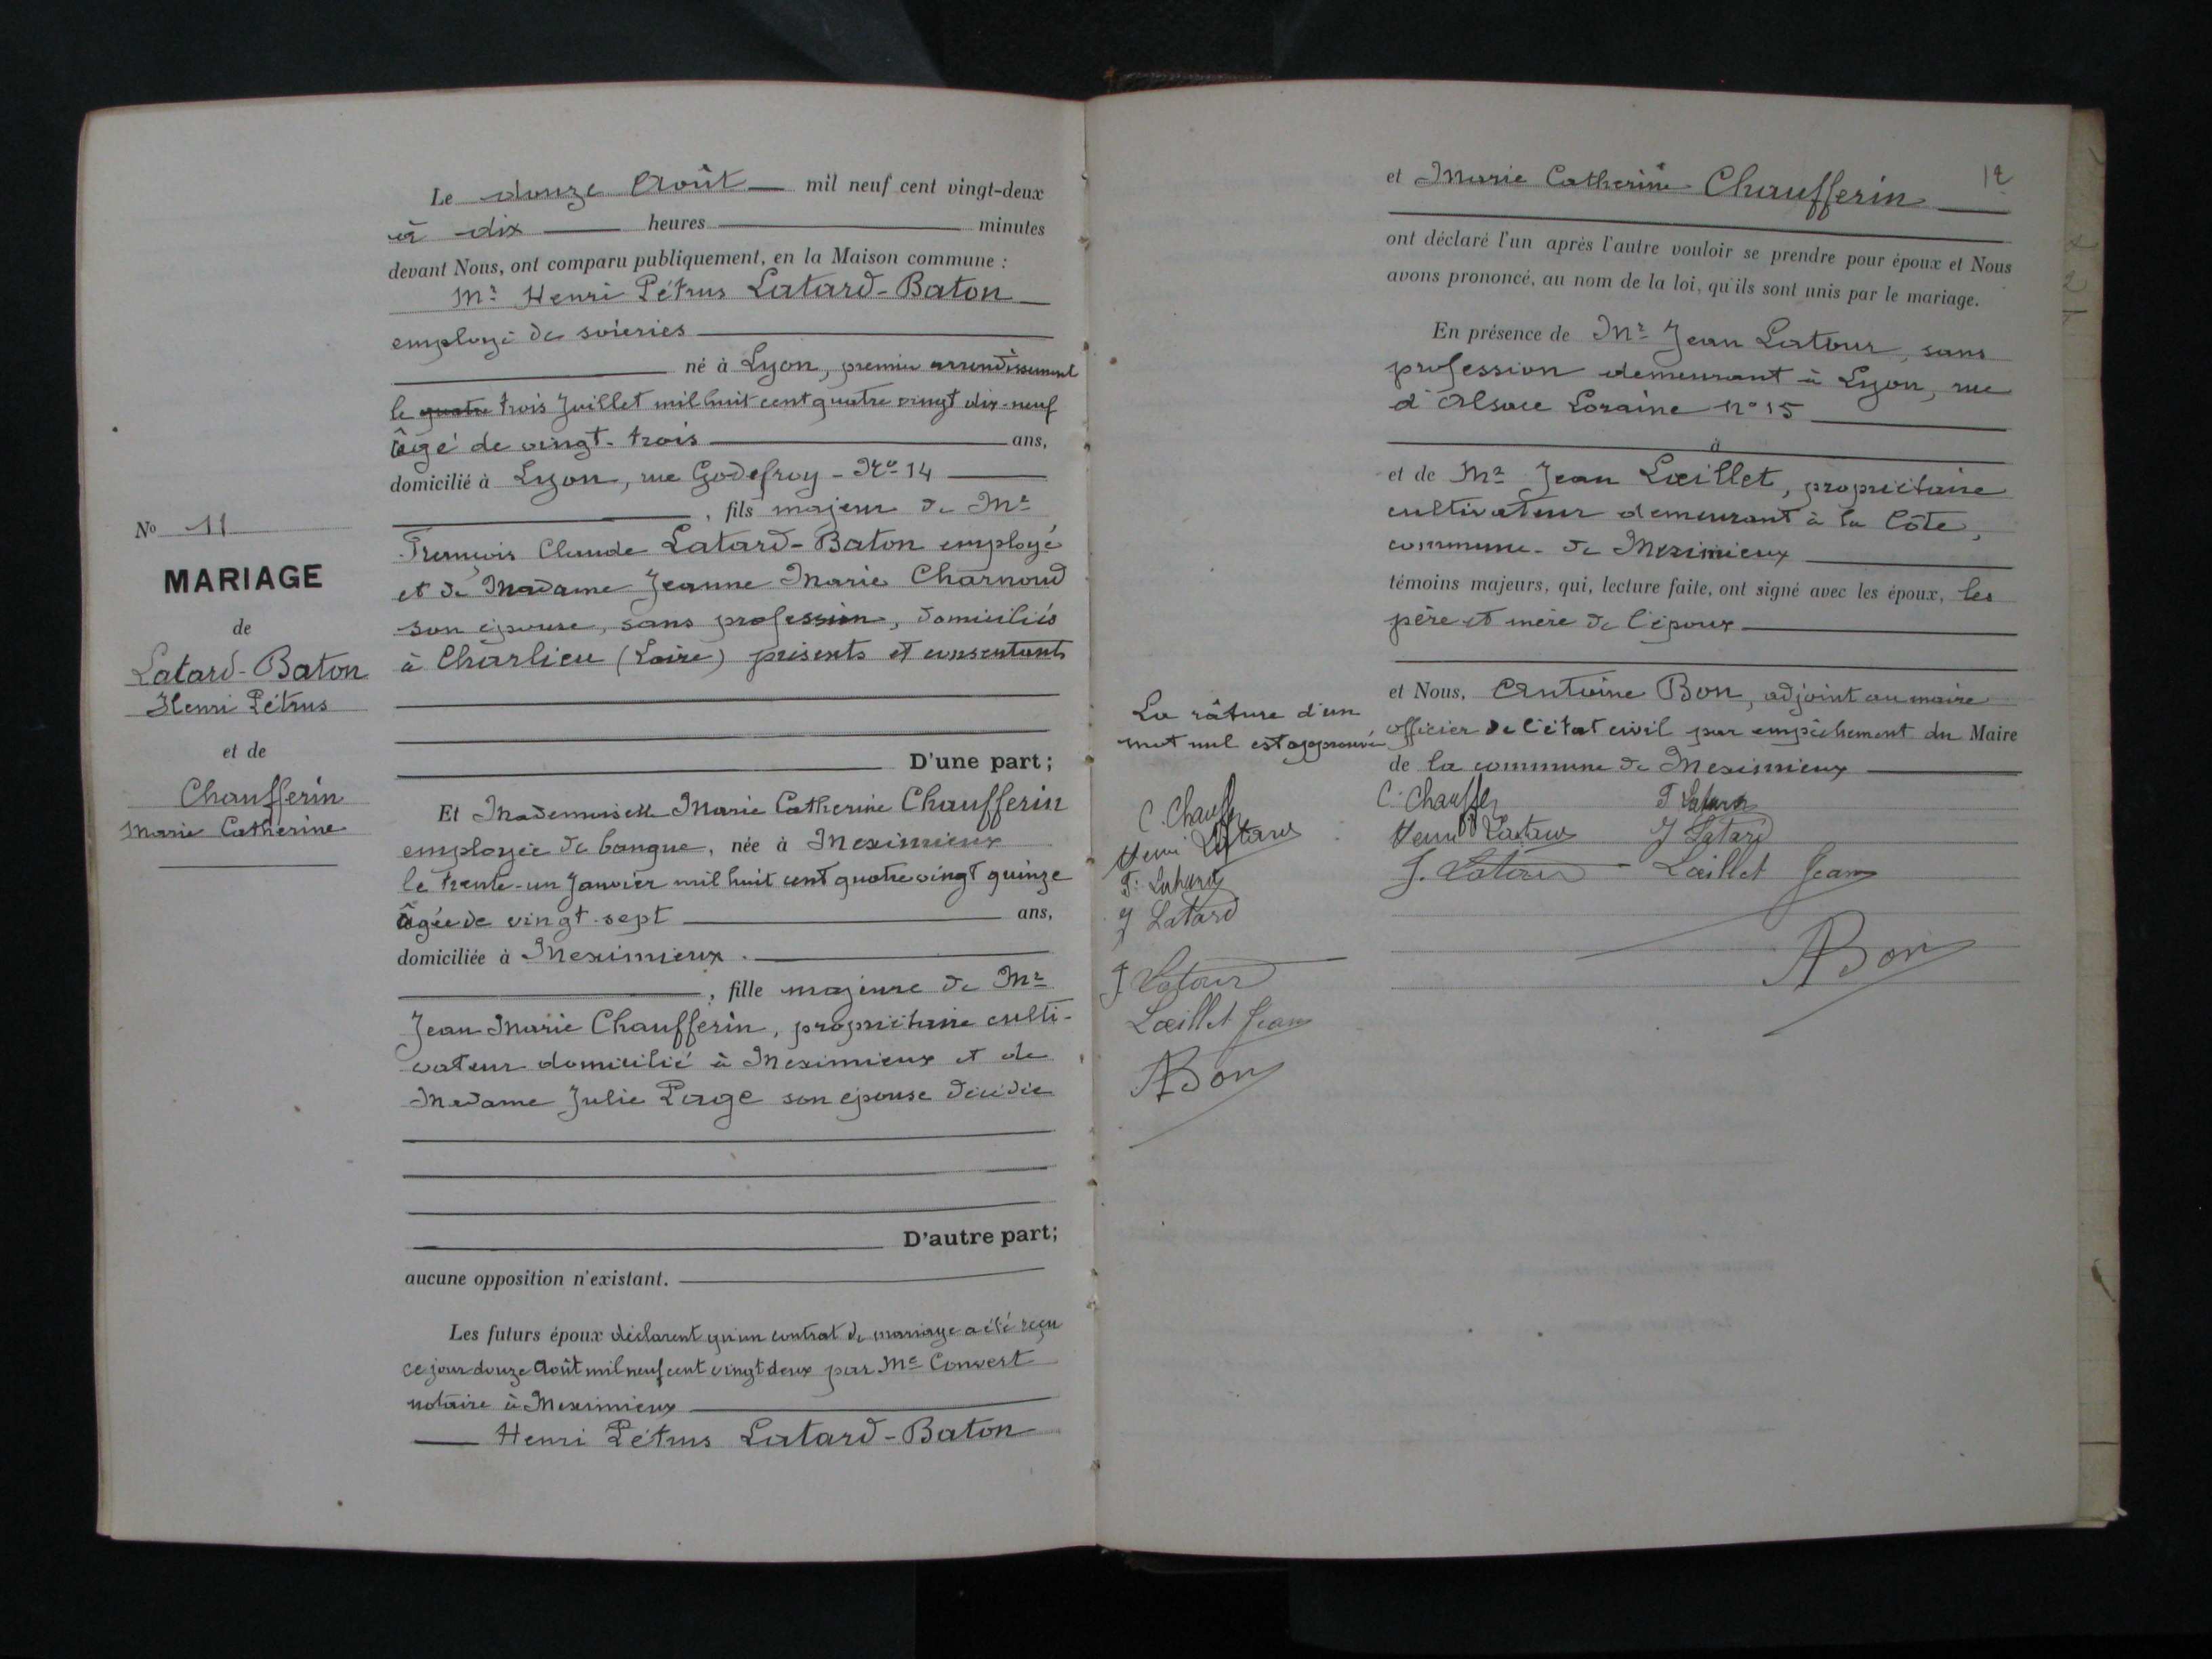 Le douze Août mil neuf cent vingt-deux
à dix heures minutes
devant Nous, ont comparu publiquement, en la Maison commune :
Mr Henri Pétrus Latard-Baton
employé de soieries
né à Lyon, premier arrondissement
le quatre trois Juillet mil huit cent quatre vingt dix-neuf
âgé de vingt-trois ans,
domicilié à Lyon, rue Godefroy - No 14
, fils majeur de Mr
François Claude Latard-Baton employé
et de Madame Jeanne Marie Charnoud
son épouse, sans profession, domiciliés
à Charlieu (Loire) présents et consentants
D'une part ;
Et Mademoiselle Marie Catherine Chaufferin
employée de banque, née à Meximieux
le trente-un Janvier mil huit cent quatre vingt quinze
âgée de vingt-sept ans,
domiciliée à Meximieux.
, fille majeure de Mr
Jean Marie Chaufferin, propriétaire culti-
vateur domicilié à Meximieux et de
Madame Julie Page son épouse décédée
D'autre part ;
aucune opposition n'existant.
Les futurs époux déclarent qu'un contrat de mariage a été reçu
ce jour douze Août mil neuf cent vingt deux par Me Convert
notaire à Meximieux
Henri Pétrus Latard-Baton
No 11
MARIAGE
de
Latard-Baton
Henri Pétrus
et de
Chaufferin
Marie Catherine
12
et Marie Catherine Chaufferin
ont déclaré l'un après l'autre vouloir se prendre pour époux et Nous
avons prononcé, au nom de la loi, qu'ils sont unis par le mariage.
En présence de Mr Jean Latour, sans
profession demeurant à Lyon, rue
d'Alsace Loraine no 15
à
et de Mr Jean Lœillet, propriétaire
cultivateur demeurant à la Côte,
commune de Meximieux
témoins majeurs, qui, lecture faite, ont signé avec les époux, les
père et mère de l'époux
et Nous, Antoine Bon, adjoint au maire
officier de l'état civil par empêchement du Maire
de la commune de Meximieux
C. Chauffe
Henri Latard
J Latard
J. Latour Lœillet Jean
ABon
La râture d'un
mot nul est approuvée
C. Chauffe
Henri Latard
J Latard
J Latour
Lœillet Jean
ABon